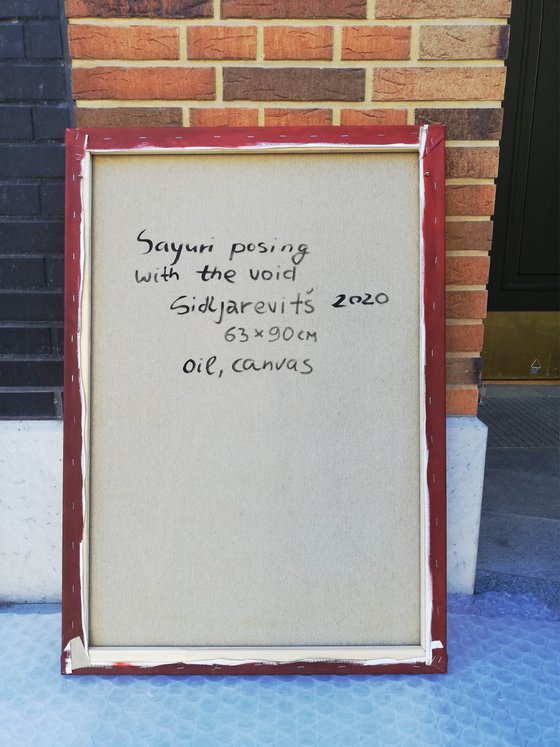 Sayuri posing
with the void
Sidljarevitš 2020
63×90см
oil, canvas